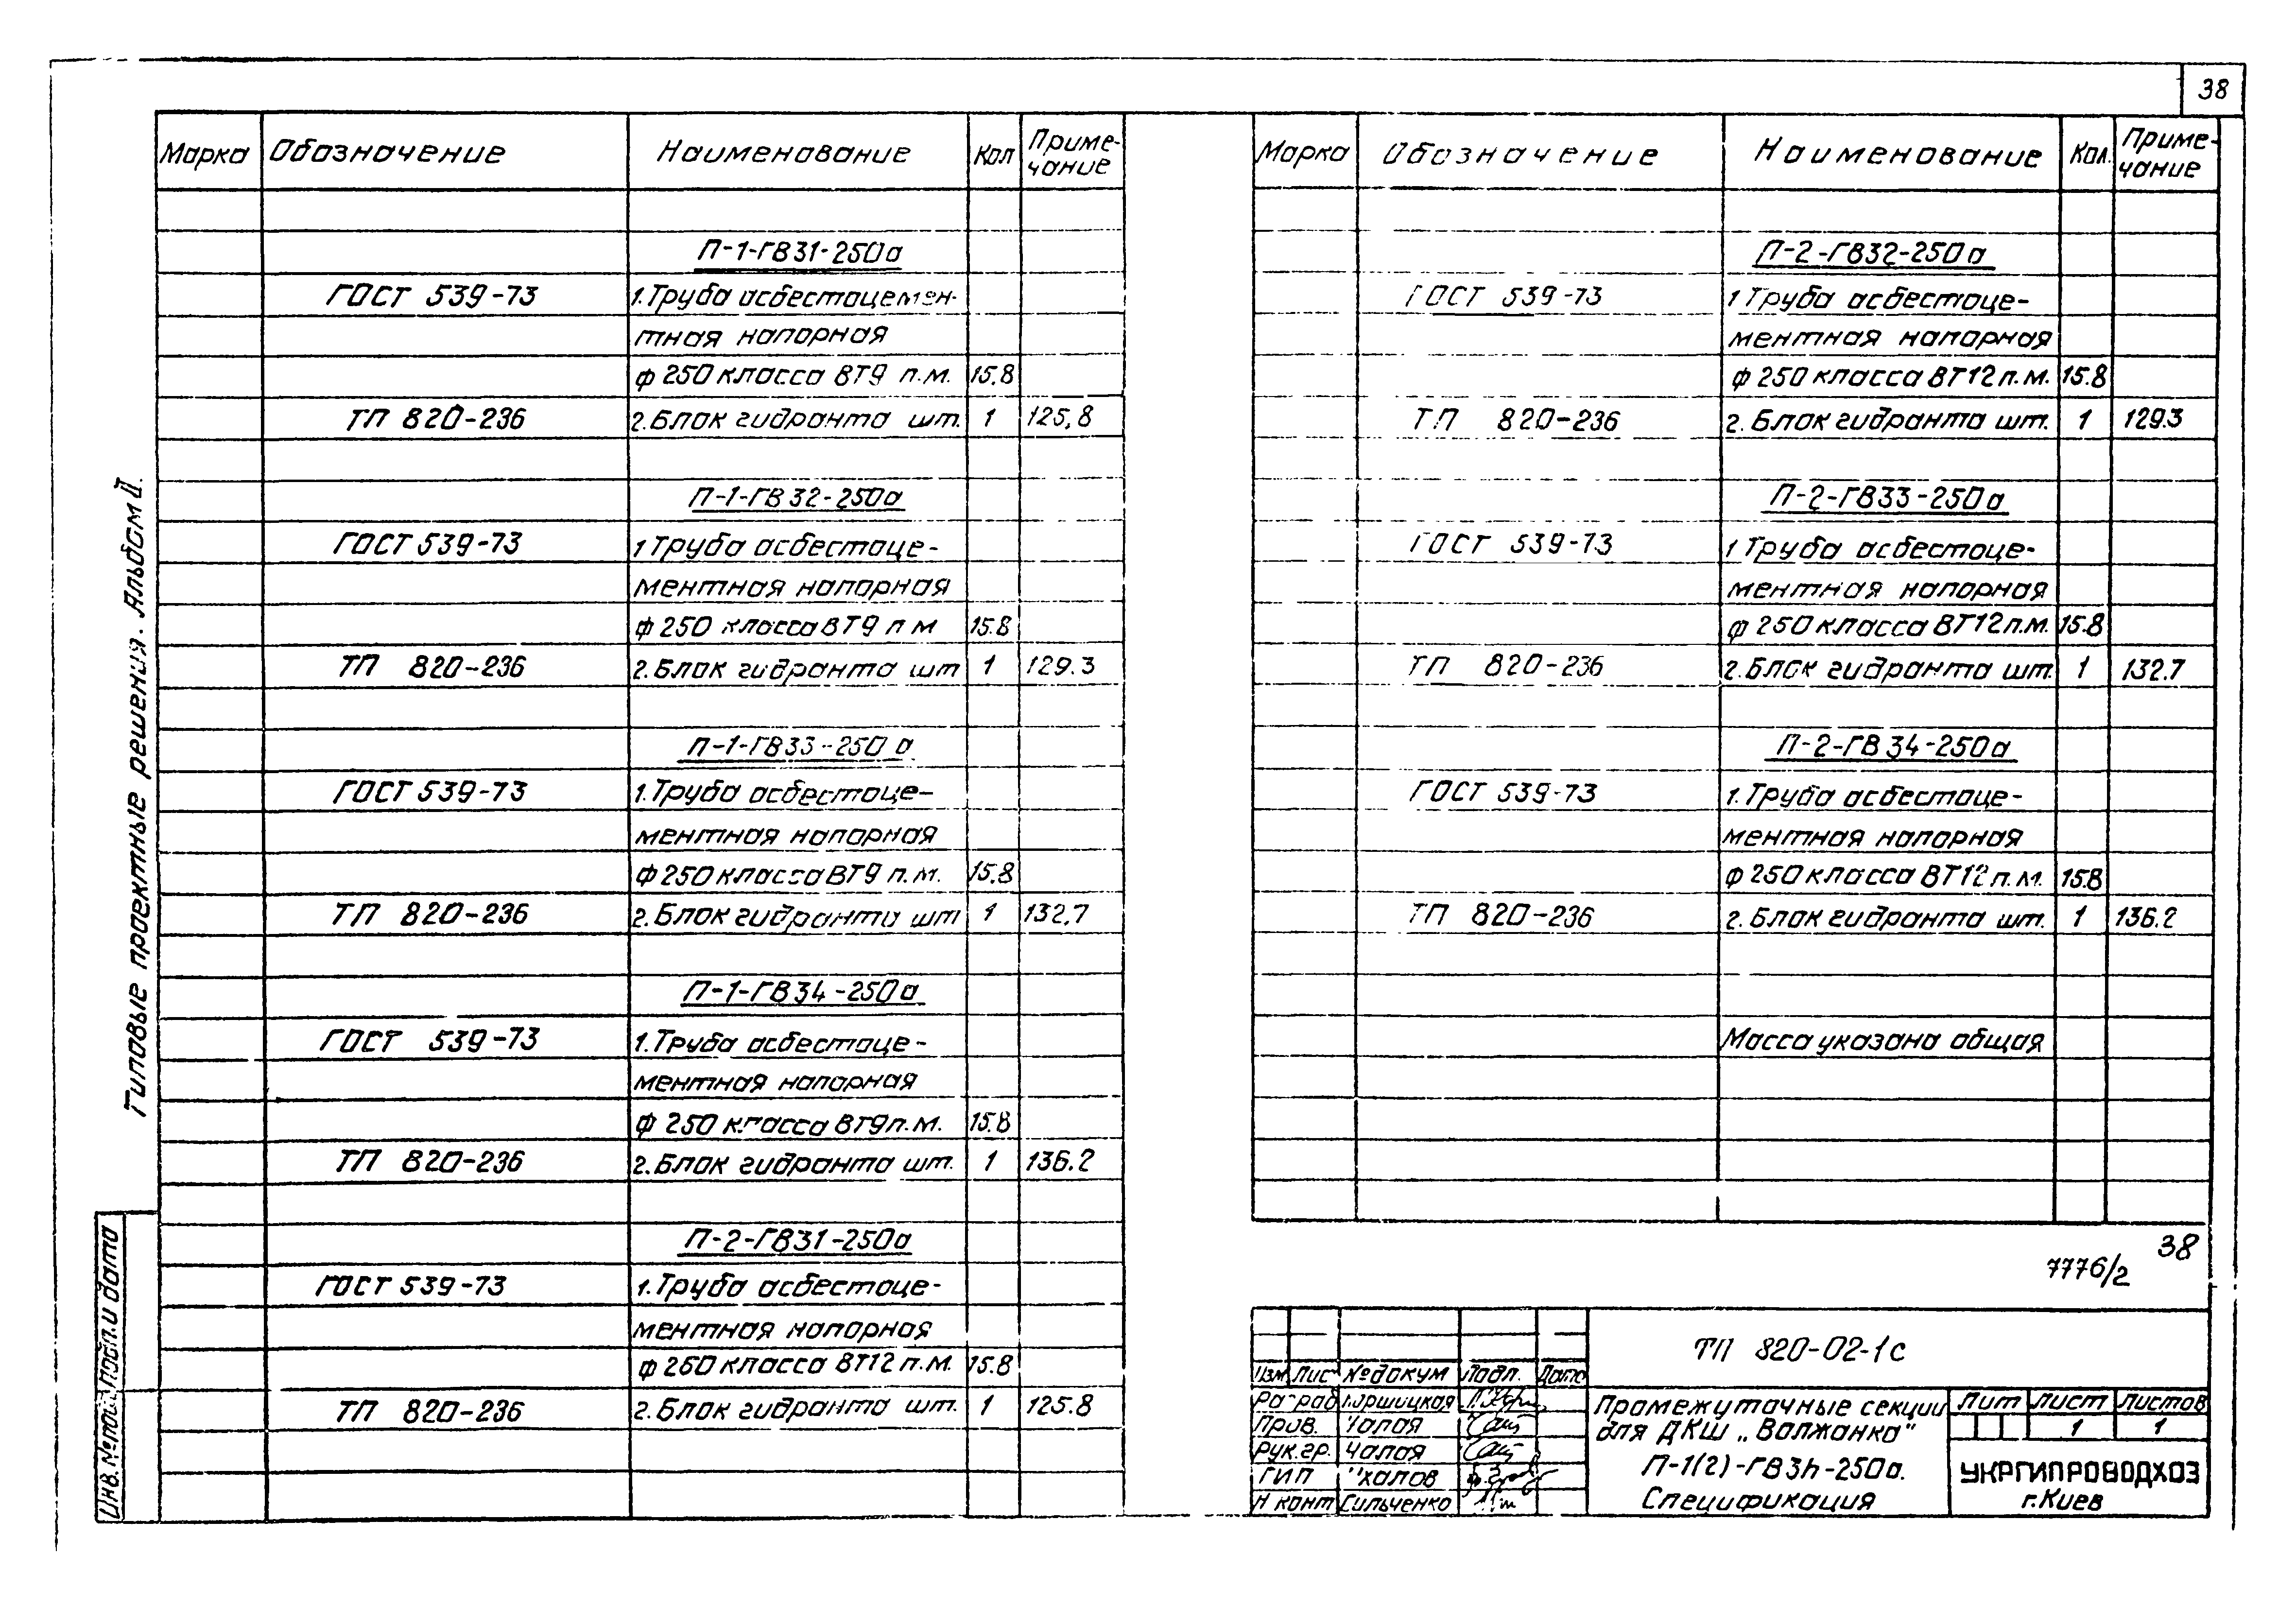 38
Марка Обозначение Наименование Кол Приме-
чание
П-1-ГВ31-250а
ГОСТ 539-73 1. Труба асбестоцемен-
тная напорная
ф 250 класса ВТ9 п.м. 15.8
ТП 820-236 2. Блок гидранта шт. 1 125,8
П-1-ГВ32-250а
ГОСТ 539-73 1 Труба асбестоце-
ментная напорная
ф 250 класса ВТ9 п м 15.8
ТП 820-236 2. Блок гидранта шт 1 129.3
П-1-ГВ33-250а
ГОСТ 539-73 1. Труба асбестоце-
ментная напорная
ф 250 класса ВТ9 п.м. 15.8
ТП 820-236 2. Блок гидранта шт 1 132.7
П-1-ГВ34-250а
ГОСТ 539-73 1. Труба асбестоце-
ментная напорная
ф 250 класса ВТ9 п.м. 15.8
ТП 820-236 2. Блок гидранта шт. 1 136.2
П-2-ГВ31-250а
ГОСТ 539-73 1. Труба асбестоце-
ментная напорная
ф 250 класса ВТ12 п.м. 15.8
ТП 820-236 2. Блок гидранта шт. 1 125.8
Марка Обозначение Наименование Кол. Приме-
чание
П-2-ГВ32-250а
ГОСТ 539-73 1 Труба асбестоце-
ментная напорная
ф 250 класса ВТ12 п.м. 15.8
ТП 820-236 2. Блок гидранта шт. 1 129.3
П-2-ГВ33-250а
ГОСТ 539-73 1 Труба асбестоце-
ментная напорная
ф 250 класса ВТ12 п.м. 15.8
ТП 820-236 2. Блок гидранта шт. 1 132.7
П-2-ГВ34-250а
ГОСТ 539-73 1. Труба асбестоце-
ментная напорная
ф 250 класса ВТ12 п.м. 15.8
ТП 820-236 2. Блок гидранта шт. 1 136.2
Масса указана общая
38
7776/2
Типовые проектные решения. Альбом II.
Инв. № подл. Подп. и дата
ТП 820-02-1с
Изм Лис № докум Подп. Дата
Разраб
Пров. Чалая
Рук.гр. Чалая
ГИП
Н конт Сильченко
Промежуточные секции
для ДКШ „Волжанка"
П-1(2)-ГВ3h-250а.
Спецификация
Лит Лист Листов
1 1
УКРГИПРОВОДХОЗ
г. Киев